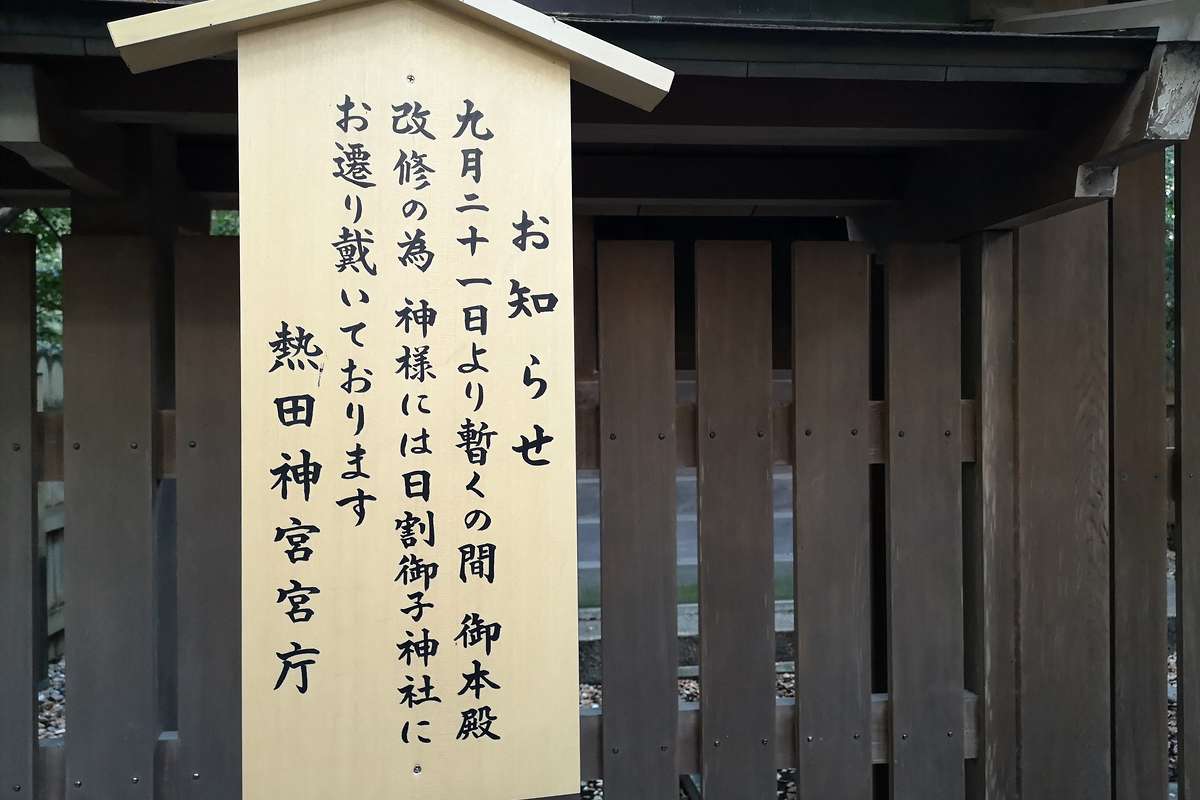 お知らせ
九月二十一日より暫くの間 御本殿
改修の為 神様には日割御子神社に
お遷り戴いております
熱田神宮宮庁